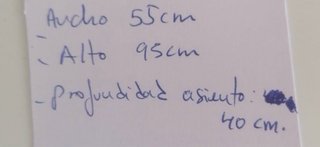 Ancho 55cm
- Alto 95cm
- profundidad asiento:
40 cm.